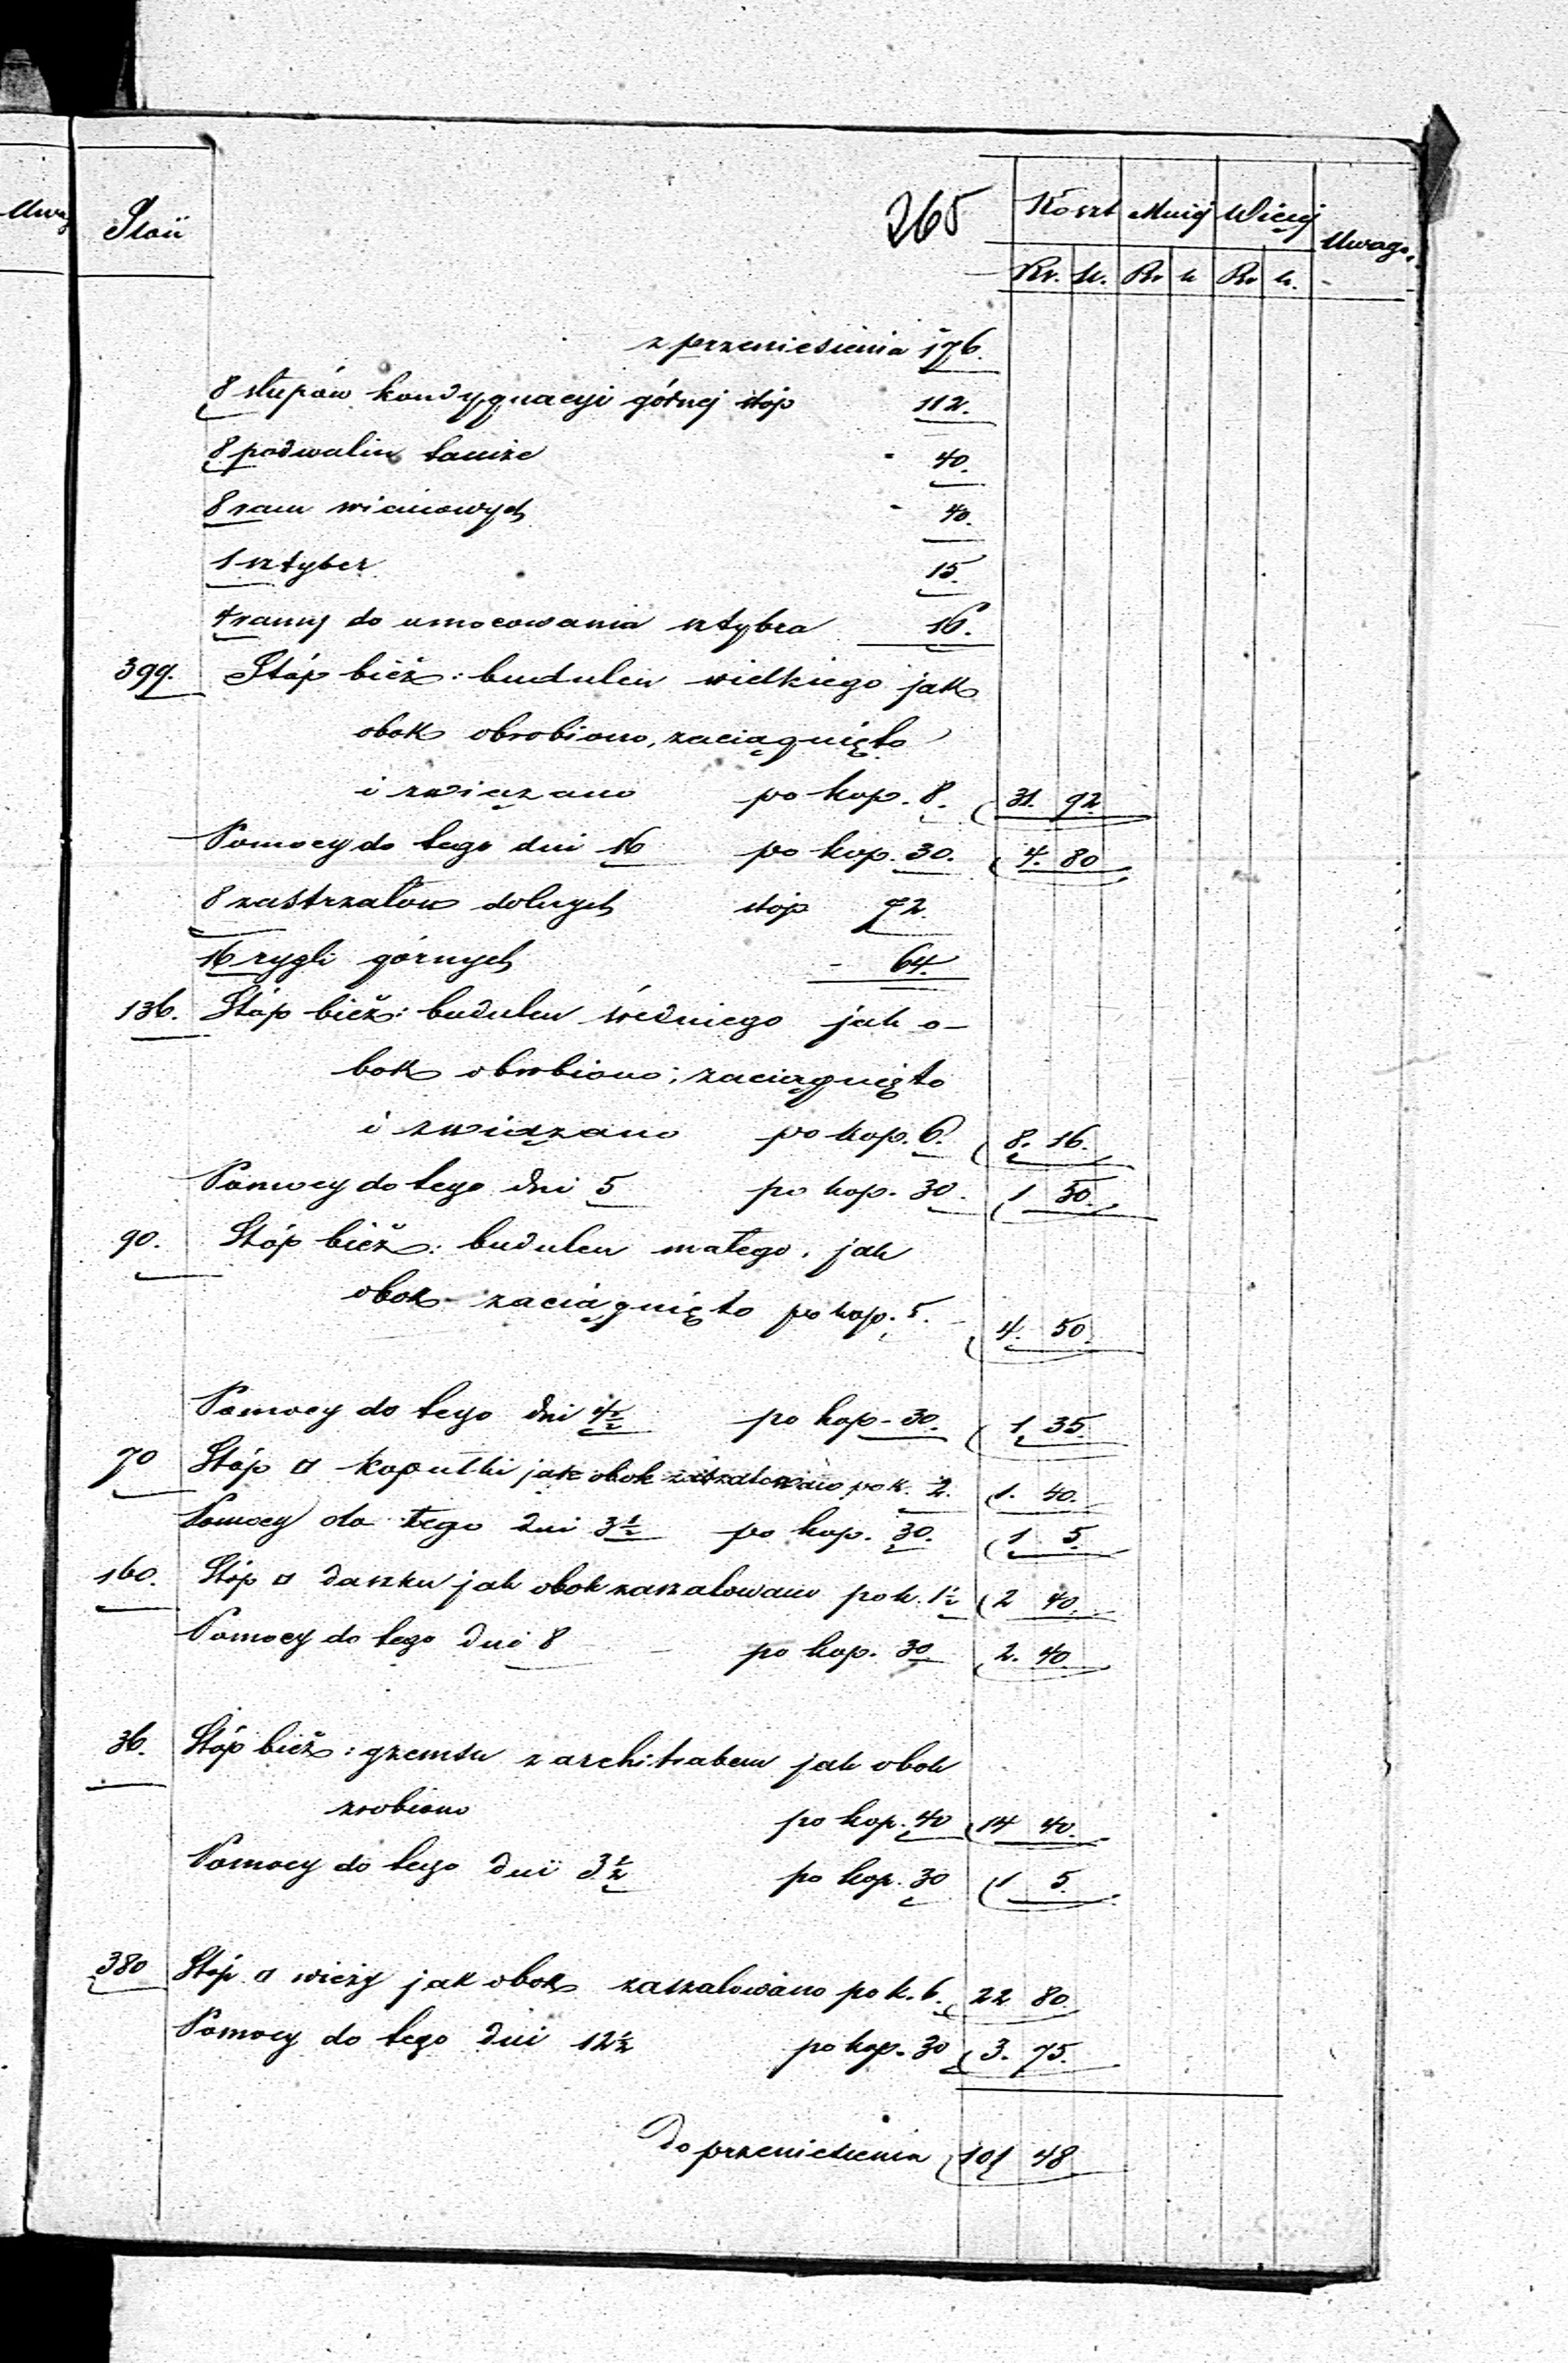 Uwag
Ilość
265
Koszt Mniej Więcej Uwaga.
Rs. k. Rs k Rs k.
z przeniesienia 176.
8 słupów kondygnacyi górnej stóp 112.
8 podwalin tamże " 40.
8 ram wieńcowych " 40.
1 sztyber 15.
4 ramy do umocowania sztybra 16.
399. Stóp bież: budulcu wielkiego jak
obok obrobiono, zaciągnięto
i związano po kop. 8. 31. 92.
Pomocy do tego dni 16 po kop. 30. 4. 80
8 zastrzałów dolnych stóp 72.
16 rygli górnych - 64.
136. Stóp bież: budulcu średniego jak o-
bok obrobiono; zaciągnięto
i związano po kop. 6. 8. 16.
Pomocy do tego dni 5 po kop. 30. 1 50.
90. Stóp bież: budulcu małego, jak
obok zaciągnięto po kop. 5. 4. 50.
Pomocy do tego dni 4½ po kop - 30. 1. 35.
70 Stóp □ kopułki jak obok zaszalowano po k. 2. 1. 40.
Pomocy do tego dni 3½ po kop. 30. 1 5.
160. Stóp □ daszku jak obok zaszalowano po k. 1½ 2 40.
Pomocy do tego dni 8 - po kop. 30 2. 40
36. Stóp bież: gzemsu z architrabem jak obok
zrobiono po kop. 40 14 40.
Pomocy do tego dni 3½ po kop. 30 1 5.
380 Stóp □ wieży jak obok zaszalowano po k. 6. 22 80
Pomocy do tego dni 12½ po kop. 30 3. 75.
Do przeniesienia 101 48